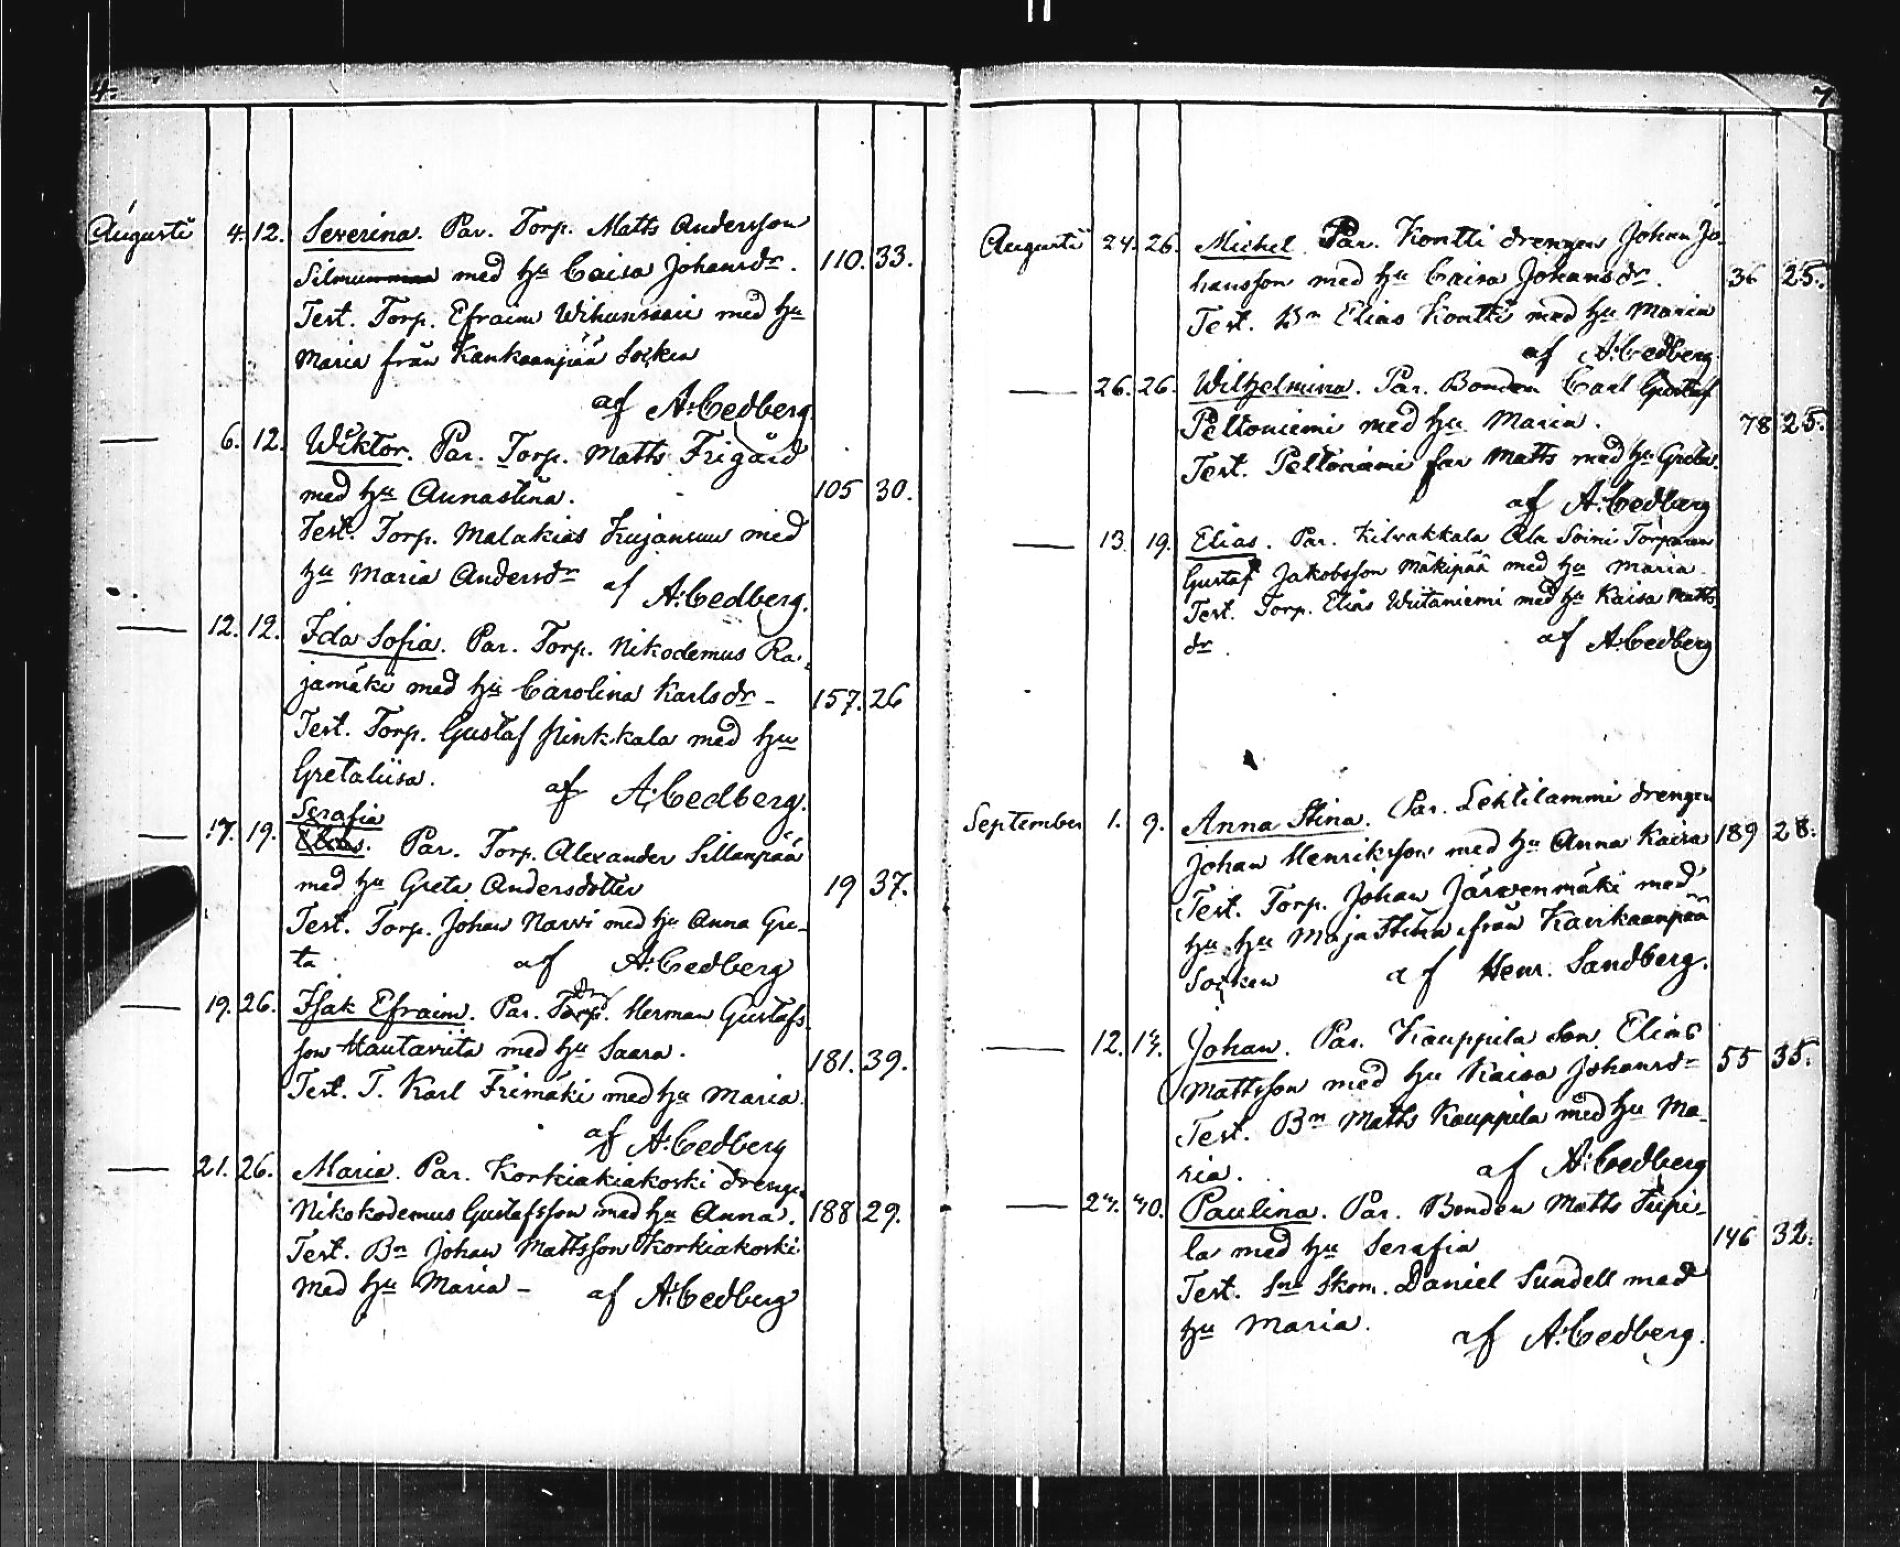 4.
Augusti 4. 12. Severina. Par. Torp. Matts Andersson
Silmunmaa med hu Caisa Johansdr. 110. 33.
Test. Torp. Efraim Wihunsaari med hu
Maria från Kankaanpää Socken
af A. Cedberg
— 6. 12. Wiktor. Par. Torp. Matts Frigård
med hu Annastina. 105 30.
Test. Torp. Malakias Kujansuu med
hu Maria Andersdr af A. Cedberg.
— 12. 12. Ida Sofia. Par. Torp. Nikodemus Ra-
jamäki med hu Carolina Karlsdr - 157. 26
Test. Torp. Gustaf Niinkkala med hu
Gretaliisa. af A. Cedberg.
Serafia
— 17. 19. Elias. Par. Torp. Alexander Sillanpää
med hu Greta Andersdotter 19 37.
Test. Torp. Johan Narvi med hu Anna Gre-
ta af A. Cedberg
— 19. 26. Isak Efraim. Par. Torp. dr Herman Gustafs
son Hautaviita med hu Saara. 181. 39.
Test. T. Karl Frimäki med hu Maria.
af A. Cedberg
— 21. 26. Maria. Par. Korkiakiakoski drengen
Nikokodemus Gustafsson med hu Anna. 188 29.
Test. Bn Johan Mattsson Korkiakoski
med hu Maria - af A. Cedberg
7
Augusti 24. 26. Michel. Par. Kontti drengen Johan Jo-
hansson med hu Caisa Johansdr. 36 25.
Test. Bn Elias Kontti med hu Maria
af A. Cedberg
— 26. 26. Wilhelmina. Par. Bonden Carl Gustaf
Peltoniemi med hu Maria. 78 25.
Test. Peltoniemi far Matts med hu Greta.
af A. Cedberg
— 13. 19. Elias. Par. Kilvakkala Ala Soini Torparen
Gustaf Jakobsson Mäkipää med hu Maria.
Test. Torp. Elias Wiitaniemi med hu Kaisa Matts
dr. af A. Cedberg
September 1. 9. Anna Stina. Par. Lehtilammi drengen
Johan Henriksson med hu Anna Kaisa 189 28.
Test. Torp. Johan Järvenmäki med
hu hu Maja Stina från Kankaanpää
Socken af Henr. Sandberg.
— 12. 14. Johan. Par. Kauppila Son Elias
Mattsson med hu Kaisa Johansdr 55 35.
Test. Bn Matts Kauppila med hu Ma-
ria. af A. Cedberg
— 24. 40. Paulina. Par. Bonden Matts Piipi-
la med hu Serafia 146 32.
Test. Sn Skom. Daniel Sundell med
hu Maria. af A. Cedberg.